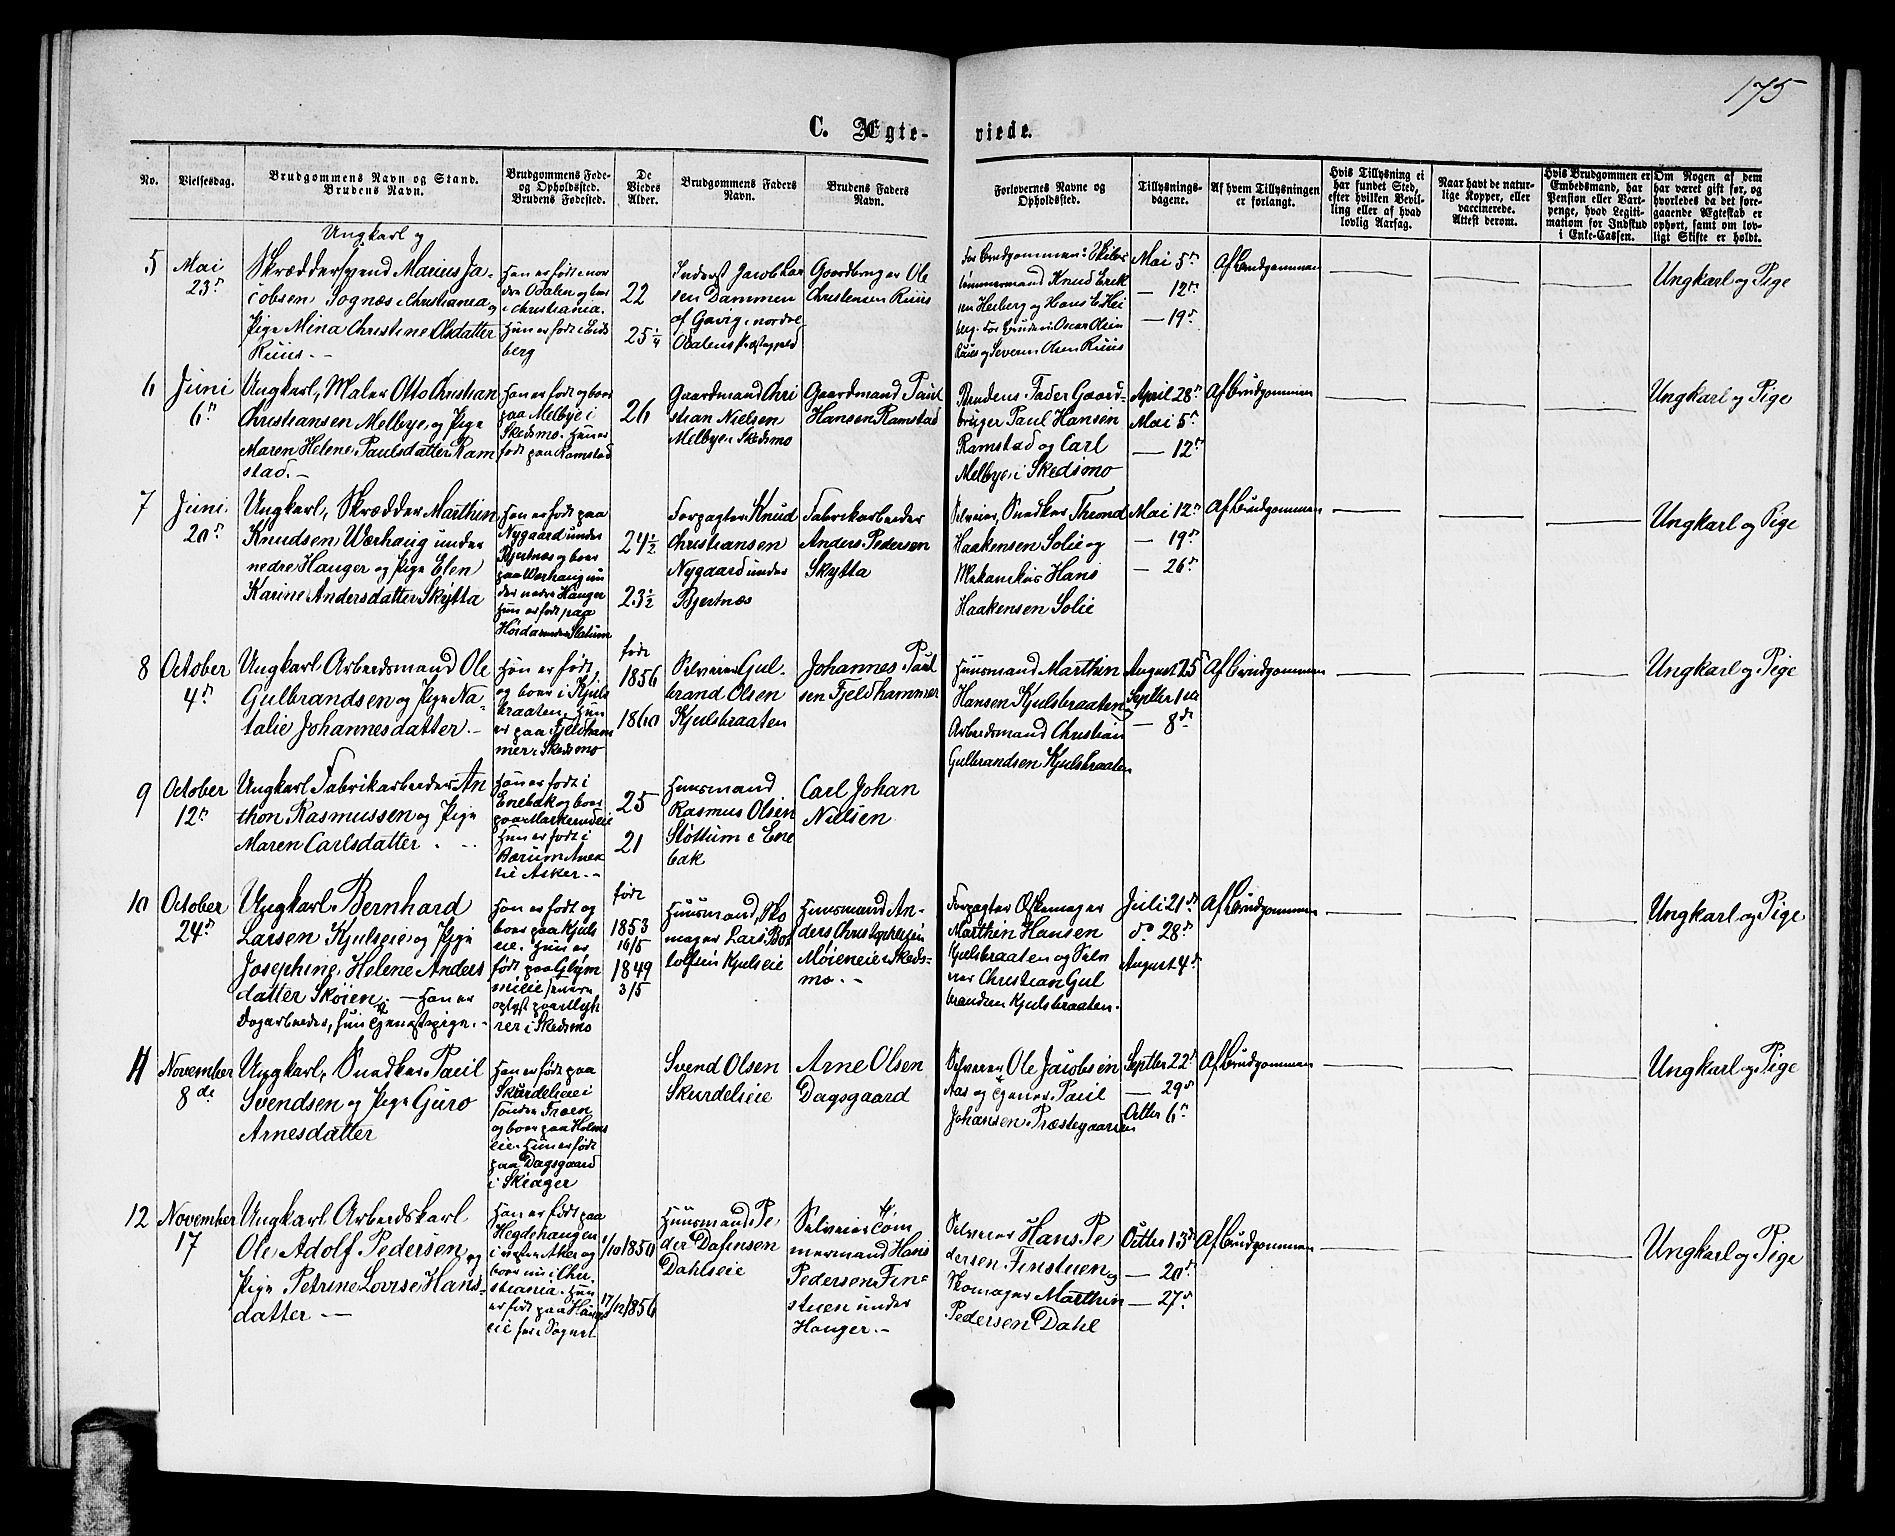 175
C. Ægte-
viede.
No.
Vielsesdag.
Brudgommens Navn og Stand.
Brudens Navn.
Brudgommens Føde-
og Opholdssted.
Brudens Fødested.
De
Viedes
Alder.
Brudgommens Faders
Navn.
Brudens Faders
Navn.
Forlovernes Navne og
Opholdssted.
Tillysnings-
dagene.
Af hvem Tillysningen
er forlangt.
Hvis Tillysning ei
har fundet Sted,
efter hvilken Bevil-
ling eller af hvad
lovlig Aarsag.
Naar havt de natur-
lige Kopper, eller
vaccinerede.
Attest derom.
Hvis Brudgommen er
Embedsmand, har
Pension eller Vart-
penge, hvad Legiti-
mation for Indskud
i Enke-Cassen.
Om Nogen af dem
har været gift før, og
hvorledes da det fore-
gaaende Ægteskab er
ophørt, samt om lov-
ligt Skifte er holdt.
5
Mai
23de
Ungkarl og
Skræddersvend Marius Ja-
cobsen Sognæs i Christiania og
Pige Mina Christine Olsdatter
Kuus.-
Han er født i nor
dre Odalen og boer
i Christiania.
Hun er født i
berg
22
25 1/4
Inderst Jacob Lar
sen Dammen
af Gavig i nordre
Odalens Præstegjeld
Gaardbruger Ole
Christensen Ruus
For Brudgommen:
tømmermand Knud Erik
sen Heiberg og Hans E. Hei
berg. For Bruden: Oscar Olsen
Ruus og Severin Olsen Ruus
Mai 5te
— 12te
— 19de
Af Brudgommen
Ungkarl og Pige
6
Juni
6te
Ungkarl, Maler Otto Christian
Christiansen Melbye og Pige
Maren Helene Paulsdatter Ram
stad.-
Han er født og boer
paa Melbye i
Skedsmo. Hun er
født paa Ramstad
26
Gaardmand Chri
stian Nielsen
Melbye i Skedsmo
Gaardmand Paul
Hansen Ramstad
Brudens Fader Gaard-
bruger Paul Hansen
Ramstad og Carl
Melbye i Skedsmo
April 28de
Mai 5te
— 12te
Af Brudgommen
Ungkarl og Pige
7
Juni
20de
Ungkarl, Skrædder Marthin
Knudsen Wærhaug under
nedre Hauger og Pige Elen
Karine Andersdatter Skytta
Han er født paa
Nygaard under
Bjertnæs og boer
paa Wærhaug un
der nedre Hauger
Hun er født paa
Høida under Slatum
24 1/2
23 1/2
Forpagter Knud
Christiansen
Nygaard under
Bjertnæs
Fabrikarbeider
Anders Pedersen
Skytta
Selveier, Snedker Thrond
Haakensen Solie og
Mekanikus Hans
Haakensen Solie
Mai 12te
— 19de
— 26de
Af Brudgommen
Ungkarl og Pige
8
October
4de
Ungkarl Arbeidsmand Ole
Gulbrandsen og Pige Na-
talie Johannesdatter.-
Han er født
og boer i Kjuls
braaten. Hun
er paa Fjeldham
mer i Skedsmo
født
1856
1860
Selveier Gul-
brand Olsen
Kjulsbraaten
Johannes Paul
sen Fjeldhammer
Huusmand Marthin
Hansen Kjulsbraaten
Arbeidsmand Christian
Gulbrandsen Kjulsbraaten
August 25de
Septbr 1ste
— 8de
Af Brudgommen
Ungkarl og Pige
9
October
12te
Ungkarl Fabrikarbeider An
thon Rasmussen og Pige
Maren Carlsdatter.
Han er født i
Enebak og boer
paa Markerudeie
Hun er født i
Bærum Anex
til Asker.-
25
21
Huusmand
Rasmus Olsen
Støttum i Ene
bak
Carl Johan
Nielsen
10
October
24de
Ungkarl Bernhard
Larsen Kjulseie og Pige
Josephine Helene Anders
datter Skøien. — Han er
Dagarbeider, hun Tjenestepige.-
Han er født og
boer paa Kjuls
eie. Hun er
født paa
eie
oplyst paa
rer i Skedsmo
født
1853
16/5
1849
3/5
Huusmand, Sko
mager Lars Bot
tolfsen Kjulseie
Huusmand An-
ders Christophersen
Møieneie i Skeds-
mo.-
Forpagter Øskemager
Marthin Hansen
Kjulsbraaten og Selv
eier Christian Gul
brandsen Kjulsbraaten.
Juli 21de
do 28de
August 4de
Af Brudgommen
Ungkarl og Pige
11
November
8de
Ungkarl, Snedker Paul
Svendsen og Pige Guro
Arnesdatter
Han er født paa
Skurdeleie i
søndre Froen
og boer paa Holms
eie. Hun er født
paa Dagsgaard
i Skiager
Svend Olsen
Skurdeleie
Arne Olsen
Dagsgaard
Selveier Ole Jacobsen
Aas og Tjener Paul
Johansen Præstegaarden
Septbr 22de
— 29de
Octbr 6te
Af Brudgommen
Ungkarl og Pige
12
November
17
Ungkarl Arbeidskarl
Ole Adolf Pedersen og
Pige Petrine Lovise Hans-
datter —
Han er født paa
Hegdehaugen
i vestre Aker og
boer nu i Chri-
stiania. Hun
er født paa Haugs
eie her i Sognet
1/10 1850
17/12 1856
Huusmand Pe
der Dafinsen
Dahlseie
Selveier Tøm
mermand Hans
Pedersen Fin
stuen under
Hauger.-
Selveier Hans Pe
dersen Finstuen og
Skomager Marthin
Pedersen Dahl
Octbr 13de
— 20de
— 27de
Af Brudgommen
Ungkarl og Pige